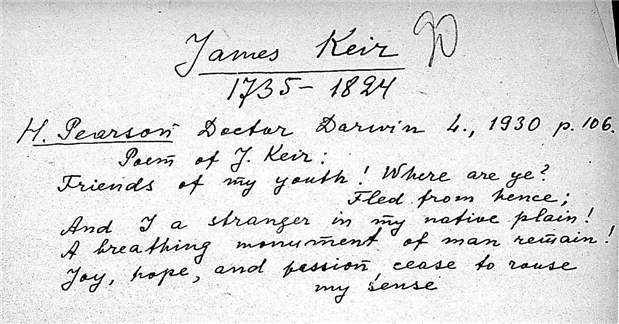 James Keir
1735-1824
H. Pearson Doctor Darwin L., 1930 p. 106.
Poem of J. Keir:
Friends of my youth! Where are ye?
Fled from hence;
And I a stranger in my native plain!
A breathing monument of man remain!
Joy, hope, and passion, cease to rouse
my sense